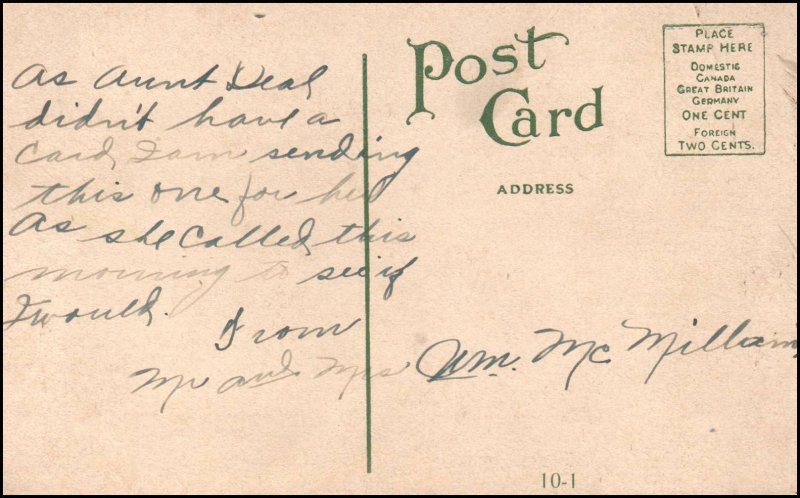 As Aunt Deal
didn't have a
Card, I am sending
this one for her
As she called this
morning to see if
I would.
From
Mr and Mrs Wm. McMilliam
Post
Card
ADDRESS
PLACE
STAMP HERE
DOMESTIC
CANADA
GREAT BRITAIN
GERMANY
ONE CENT
FOREIGN
TWO CENTS.
10-1